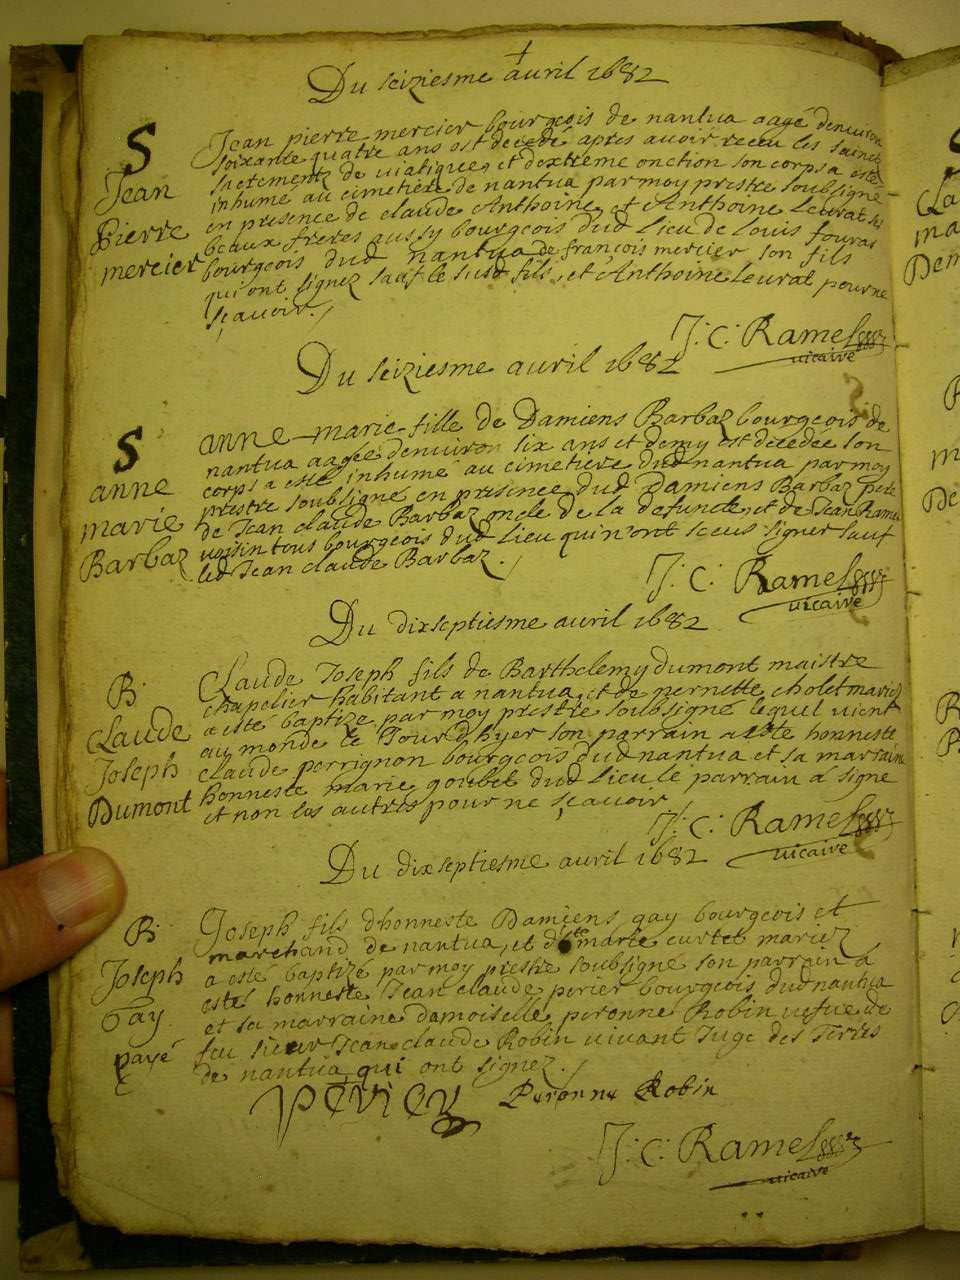 Du seiziesme auril 1682
S
Jean
Pierre
mercier
Jean pierre mercier bourgeois de nantua aagé denuiron
soixante quatre ans est decedé apres auoir receu les saincts
sacrementz de uiatique, et dextreme onction son corps a esté
inhumé au cimetiere de nantua par moy prestre soubsigné
en presence de claude Anthoine, et Anthoine Leurat ses
beaux freres aussy bourgeois dud lieu de Louis fouras
bourgeois dud nantua, de françois mercier son fils
qui ont signez sauf le susd fils, et Anthoine Leurat pour ne
sçauoir./
J: C: Ramel
uicaire
Du seiziesme auril 1682
S
anne
marie
Barbaz
anne-marie-fille de Damiens Barbaz bourgeois de
nantua aagée denuiron six ans et demy est decedée son
corps a esté inhumé au cimetiere dud nantua par moy
prestre soubsigné en presence dud Damiens Barbaz pere
de Jean claude Barbaz oncle de la defuncte, et de Jean Ramel
uoisin tous bourgeois dud lieu qui n'ont sceus signer sauf
led Jean claude Barbaz./
J: C: Ramel
uicaire
Du dixseptiesme auril 1682
B.
Claude
Joseph
Dumont
Claude Joseph fils de Barthelemy dumont maistre
chapelier habitant a nantua, et de pernette cholet mariez
a esté baptizé par moy prestre soubsigné lequel uient
au monde le Jour dhyer son parrain a esté honneste
claude perrignon bourgeois dud nantua et sa marraine
honneste marie goubet dud lieu le parrain a signé
et non les autres pour ne sçauoir./
J: C: Ramel
uicaire
Du dixseptiesme auril 1682
B.
Joseph
Gay
payé
Joseph fils dhonneste Damiens gay bourgeois et
marchand de nantua, et d marie curtet mariez
a esté baptizé par moy prestre soubsigné son parrain a
esté honneste Jean claude perier bourgeois dud nantua
et sa marraine damoiselle peronne Robin uefue de
feu sieur Jean claude Robin uiuant Juge des Terres
de nantua, qui ont signez./
Perier Peronne Robin
J: C: Ramel
uicaire